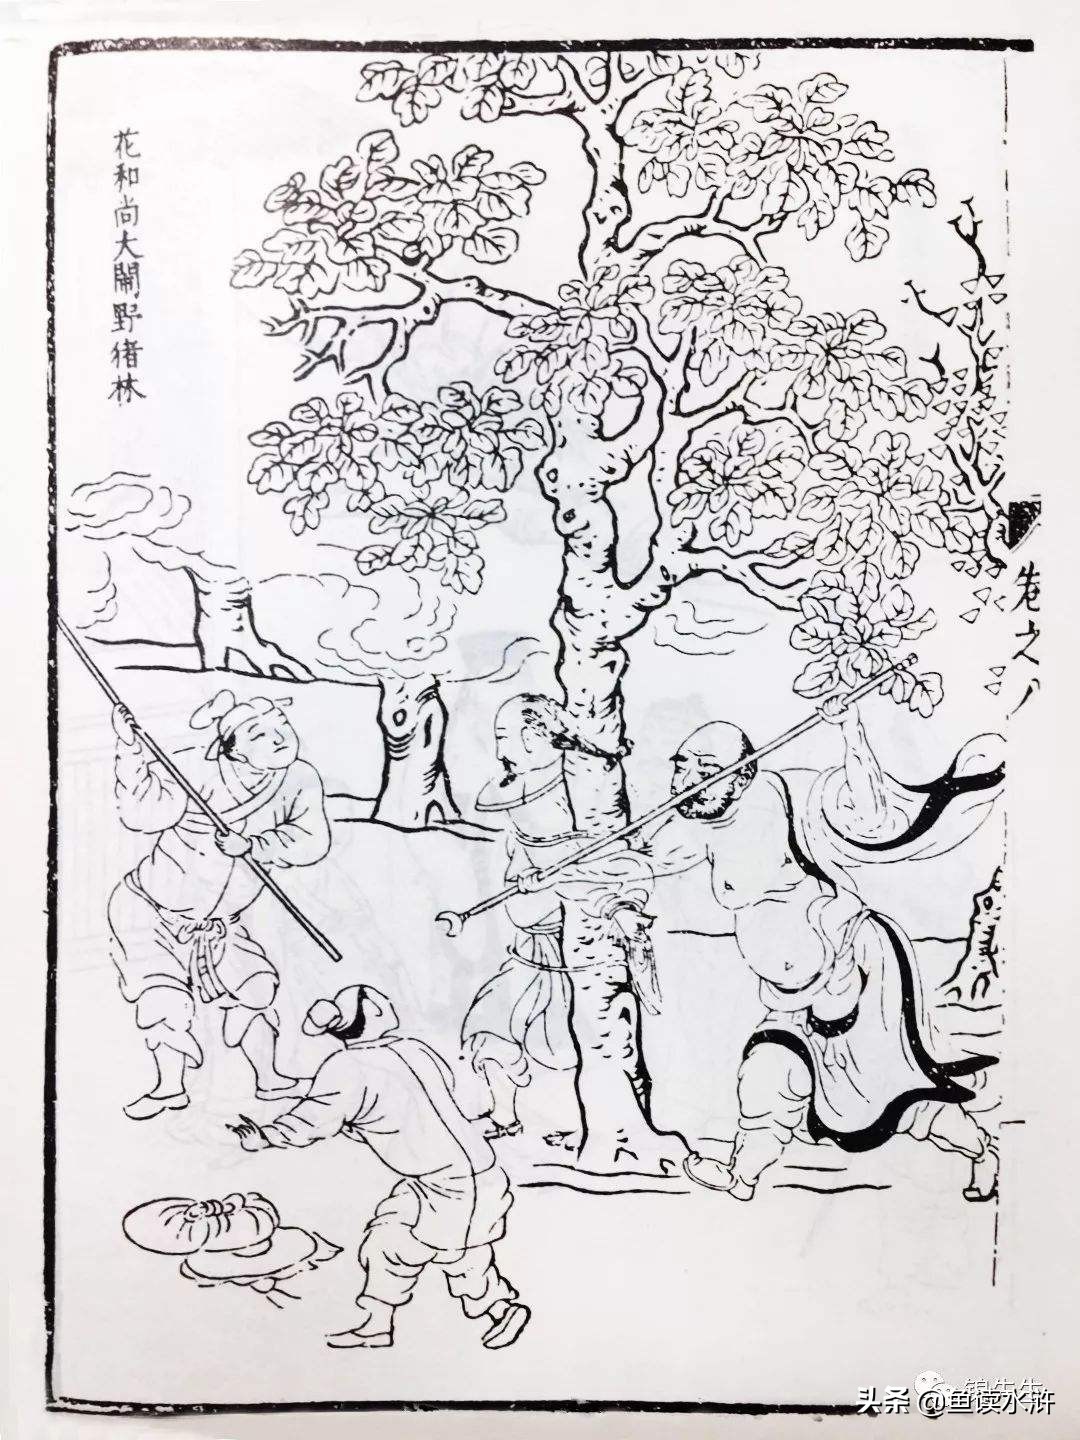 花和尚大鬧野猪林
卷之八
头条 @鱼读水浒